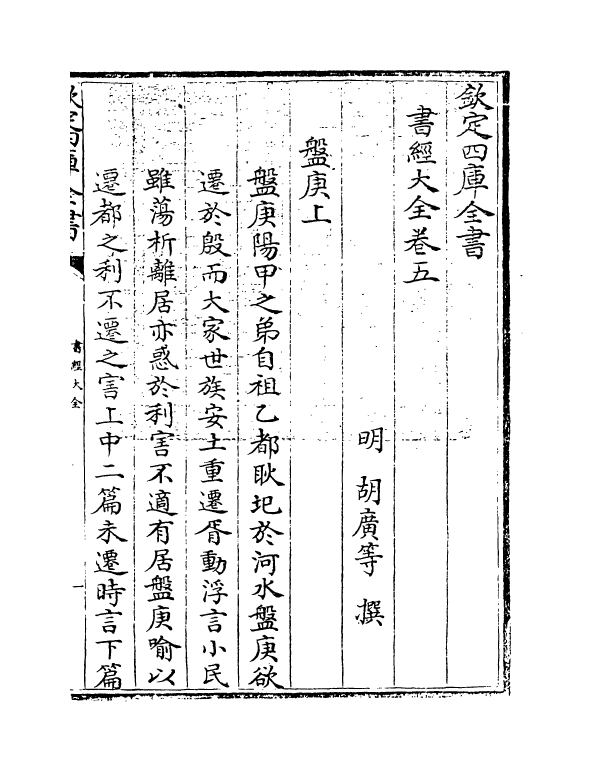 欽定四庫全書
書經大全卷五
明 胡廣等 撰
盤庚上
盤庚陽甲之弟自祖乙都耿圯於河水盤庚欲
遷於殷而大家世族安土重遷胥動浮言小民
雖蕩析離居亦惑於利害不適有居盤庚喻以
遷都之利不遷之害上中二篇未遷時言下篇
欽定四庫全書
書經大全
一